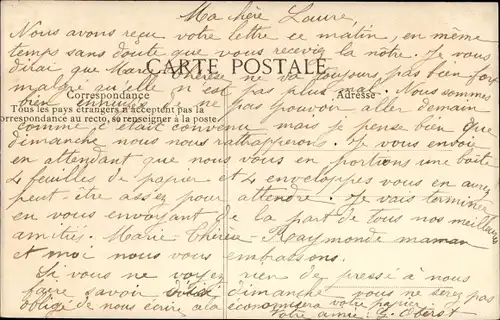 Ma chère Laure,
Nous avons reçu votre lettre ce matin, en même
temps sans doute que vous receviez la nôtre. Je vous
CARTE POSTALE
dirai que Marie-Thérèse ne va toujours pas bien fort
malgré qu'elle n'est pas plus mal. Nous sommes
Correspondance
Adresse
bien ennuiés de ne pas pouvoir aller demain
Tous les pays étrangers n'acceptent pas la
correspondance au recto, se renseigner à la poste
comme c'était convenu mais je pense bien que
dimanche nous nous rattraperons. Je vous envoie
en attendant que nous vous en portions une boîte
4 feuilles de papier et 4 enveloppes vous en aurez
peut-être assez pour attendre. Je vais terminer
en vous envoyant de la part de tous nos meilleures
amitiés. Marie-Thérèse - Raymonde maman
et moi nous vous embrassons.
Si vous ne voyez rien de pressé à nous
faire savoir dimanche vous ne serez pas
obligé de nous écrire cela économisera votre papier.
Votre amie: G. Oberst